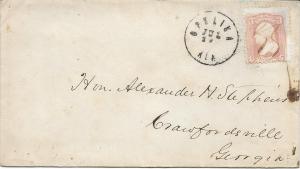 OPELIKA
JUL
ALA
Hon. Alexander H. Stephens
Crawfordsville
Georgia